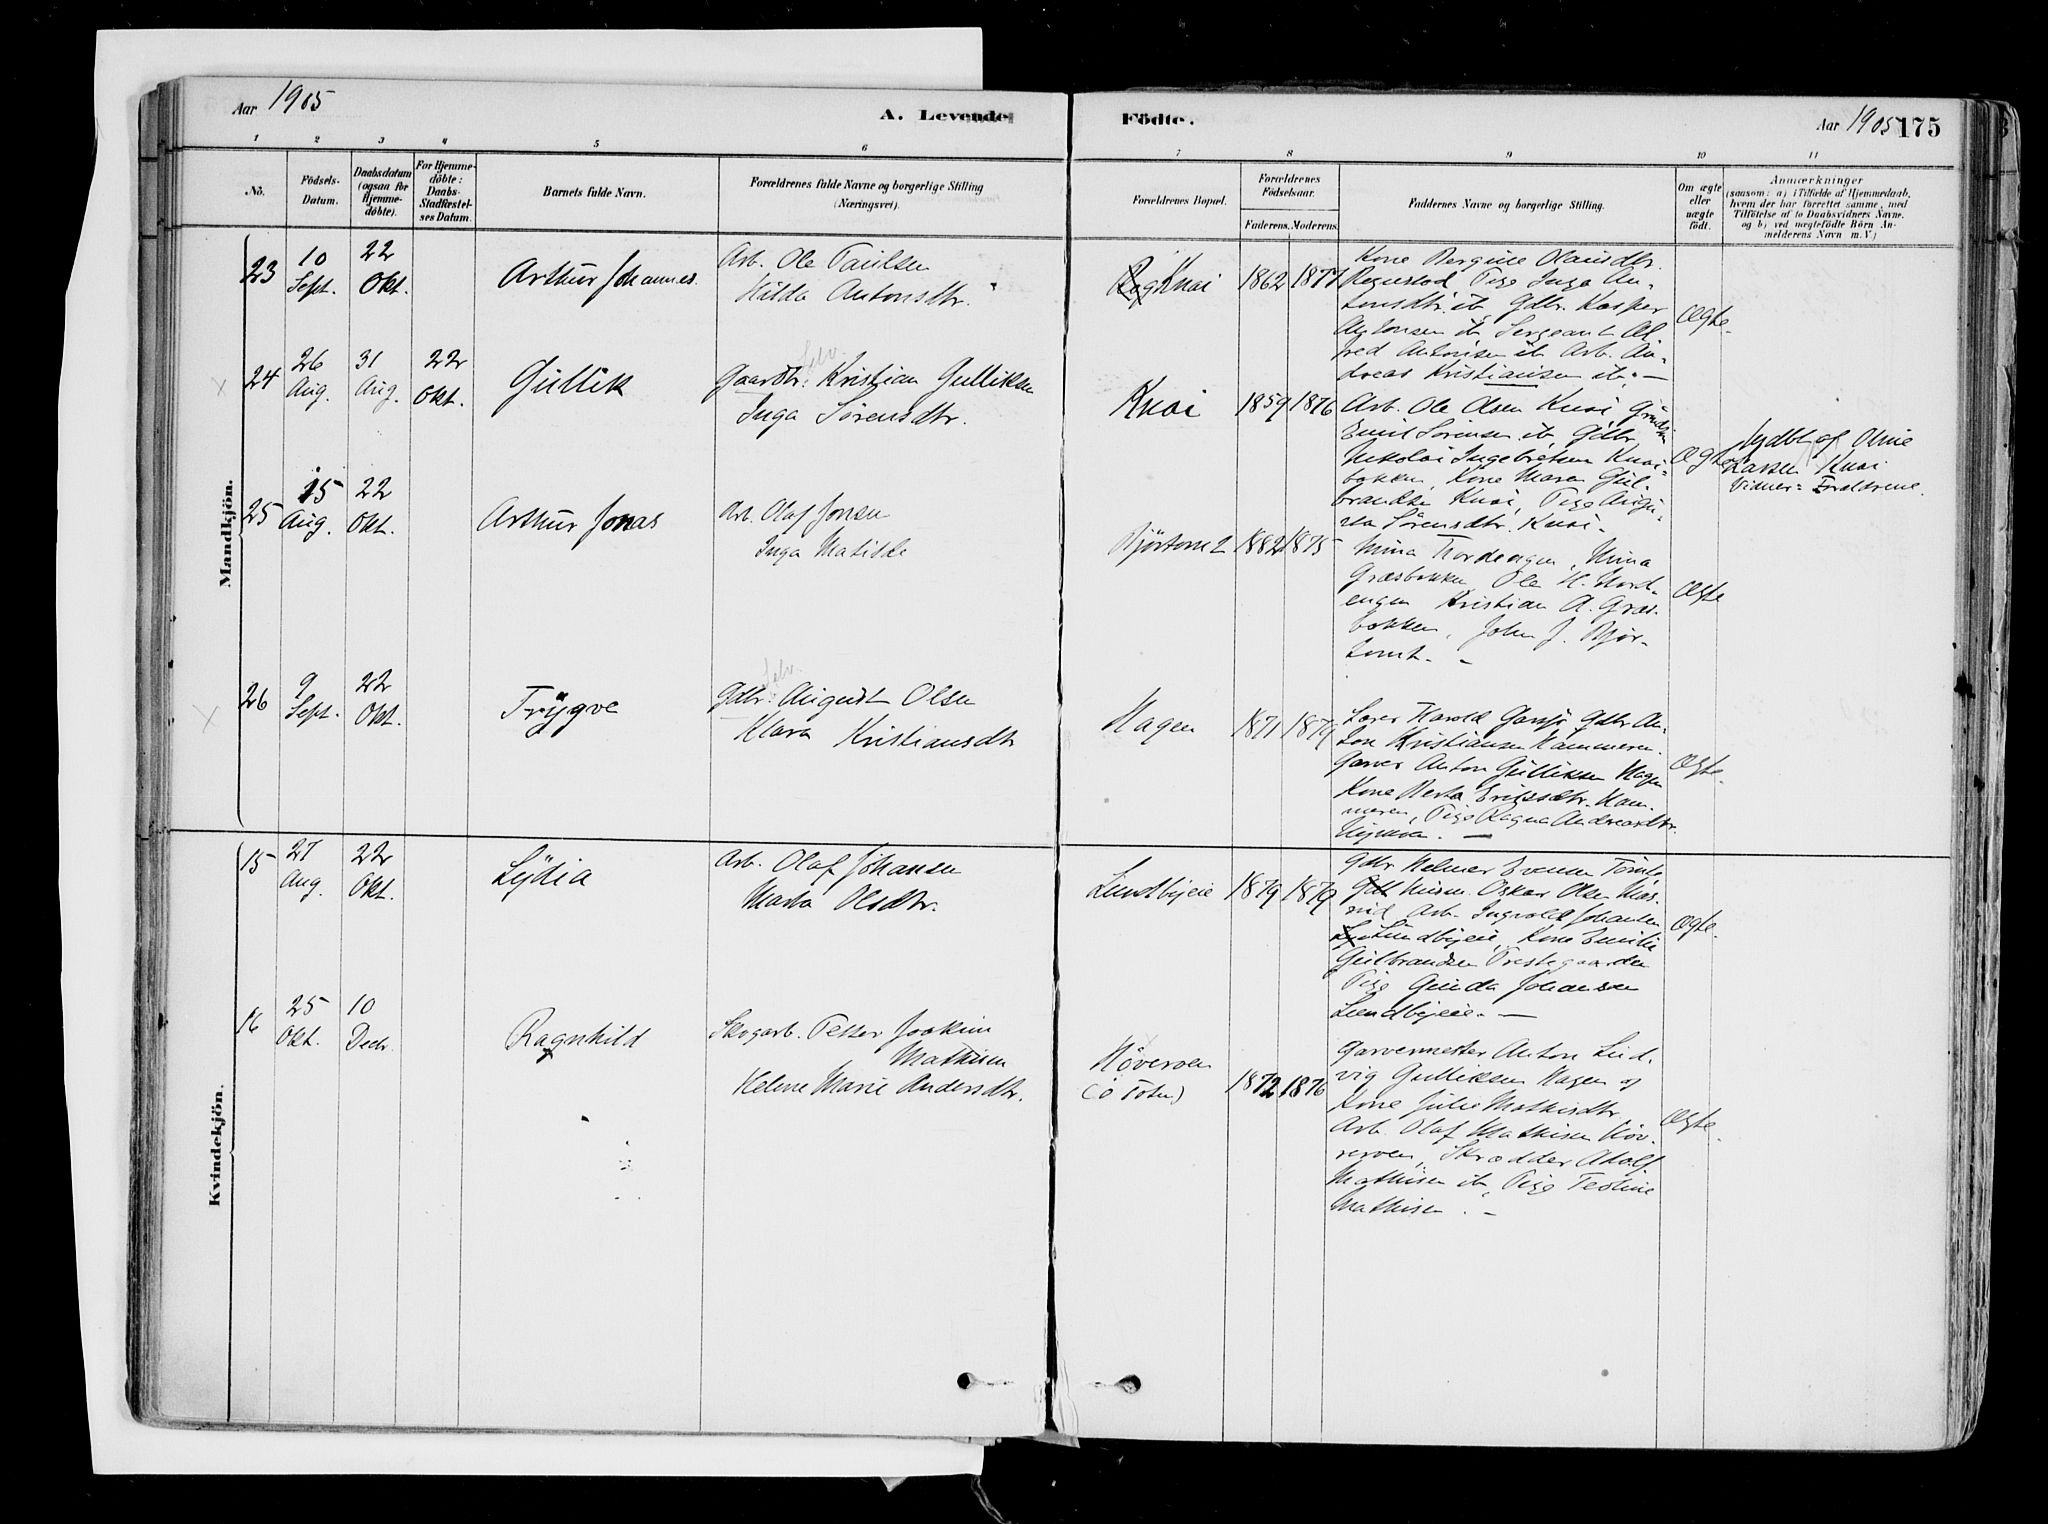 Aar 1905
A. Levende
Födte.
Aar 1905 175
1 2 3 4 5 6 7 8 9 10 11
No.
Födsels-
Datum.
Daabsdatum
(ogsaa for
Hjemme-
döbte).
For Hjemme-
döbte:
Daabs-
Stadfæstel-
ses Datum.
Barnets fulde Navn.
Forældrenes fulde Navne og borgerlige Stilling
(Næringsvei).
Forældrenes Bopæl.
Forældrenes
Födselsaar.
Faderens. Moderens.
Faddernes Navne og borgerlige Stilling.
Om ægte
eller
uægte
födt.
Anmærkninger
(saasom: a) i Tilfælde af Hjemmedaab,
hvem der har forrettet samme, med
Tilföielse af to Daabsvidners Navne.
og b) ved uægtefödte Börn An-
melderens Navn m. V.)
Mandkjön.
23
10
Sept.
22
Okt.
Arthur Johannes.
Arb. Ole Paulsen
Hilda Antonsdtr.
Knai
1862 1877
Kone Bergine Olausdtr.
Rognstad, Pige Inga An-
tonsdtr. ib, Gdbr. Kasper
Antonsen ib, Sergeant Al
fred Antonsen ib, Arb. An-
dreas Kristiansen ib. —
Ægte.
24
26
Aug.
31
Aug.
22
Okt.
Gullik
Selv.
Gaardbr. Kristian Gulliksen
Inga Sørensdtr.
Knai
1859 1876
Arb. Ole Olsen Knai,
Emil Sørensen ib, Gdbr.
Nikolai Ingebretsen Knai-
bakken, Kone Maren Gul-
brandsen Knai, Pige Augu-
sta Sørensdtr. Knai.
Ægte
Nødbt af Oline
Larsen Knai
Vidner: Forældrene.
25
15
Aug.
22
Okt.
Arthur Jonas
Arb. Olaf Jonsen
Inga Matilde
Bjørtomt
1882 1875
Mina Nordengen, Mina
Græsbakken, Ole H. Nord-
engen Kristian A. Græs-
bakken, John J. Bjør-
tomt. —
Ægte
26
9
Sept.
22
Okt.
Trygve
Selv.
Gdbr. August Olsen
Klara Kristiansdtr
Hagen
1871 1879
Lærer Harald Gansjø, Gdbr. An-
ton Kristiansen Kammeren.
Garver Anton Gulliksen Hagen
Kone Berta Eriksdtr. Kam-
meren, Pige Ragna Andreasdtr.
Ægte.
Kvindekjön.
15
27
Aug.
22
Okt.
Lydia
Arb. Olaf Johansen
Marta Olsdtr.
Lundbyeie
1879 1879
Gdbr Helmer Evensen Tømte
Oskar Olsen Møs-
Arb. Ingvald Johansen
Lundbyeie, Kone Emilie
Gulbrandsen Prestegaarden
Pige Gunda Johansen
Lundbyeie. —
Ægte.
16
25
Okt.
10
Decbr.
Ragnhild
Skogarb. Petter Joakim
Mathisen
Helene Marie Andersdtr.
Høveroen
(Ø Toten)
1872 1876
Garvermester Anton Lud-
vig Gulliksen Hagen og
Kone Julie Mathisdtr.
Arb. Olaf Mathisen Høv-
eroen, Skrædder Adolf
Mathisen ib, Pige Teoline
Mathisen. —
Ægte.